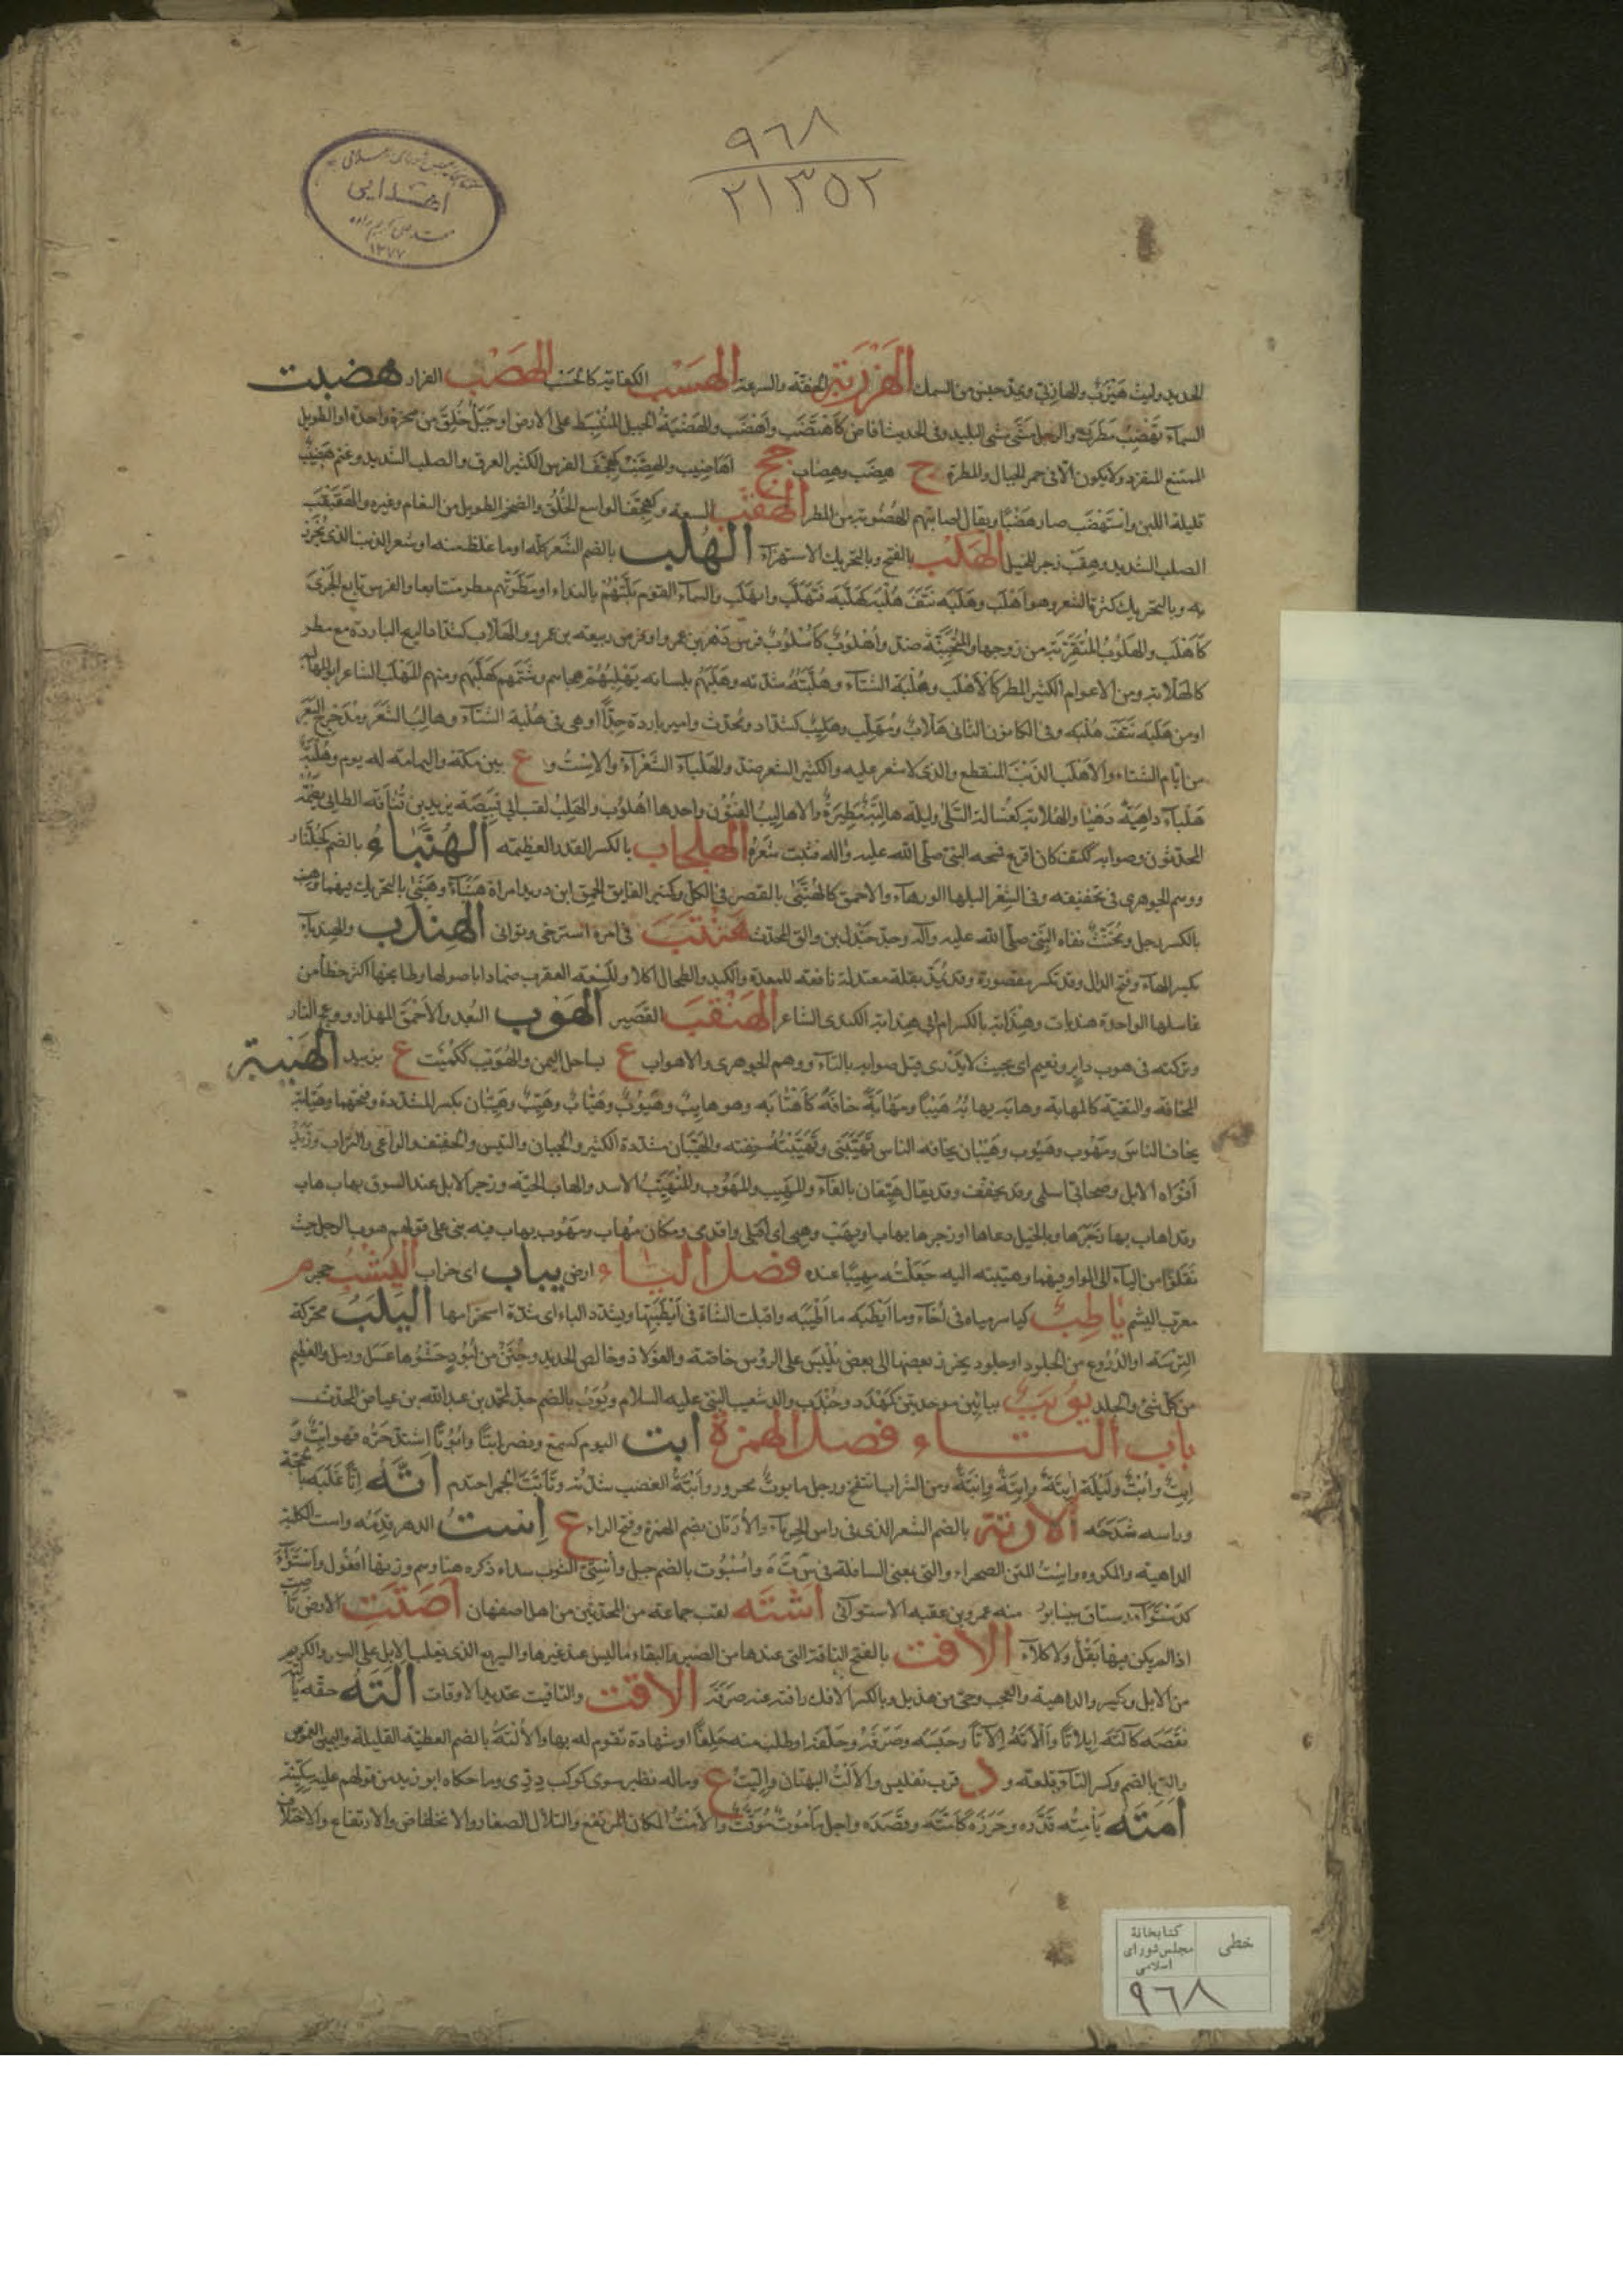 ٩٦٨
٢١٣٥٢
اهدايى
١٣٧٧
الحديد وليث هيزب والهازبى ويمد جنس من السمك الهزربة الخفة والسرعة الهسب الكفاية كالحسب الهصب الفرار هضبت
السماء تهضب مطرت والرجل مشى مشى البليد وفى الحديث افاض كاهتضب واهضب والهضبة الجبل المنبسط على الارض او جبل خلق من صخرة واحدة او الطويل
الممتنع المنفرد ولا يكون الا فى حمر الجبال والمطرة ج هضب وهضاب جج اهاضيب والهضب كهجف الفرس الكثير العرق والصلب الشديد وغنم هضيب
قليلة اللبن واستهضب صار هضبا ويقال اصابتهم اهضوبة من المطر الهقب السعة وكهجف الواسع الخلق والضخم الطويل من النعام وغيره والهقبقب
الصلب الشديد وهقب زجر للخيل الهكب بالفتح وبالتحريك الاستهزاء الهلب بالضم الشعر كله او ما غلظ منه او شعر الذنب الذى يخرز
به وبالتحريك كثرة الشعر وهو اهلب وهلبه نتف هلبه كهلبه فتهلب وانهلب والسماء القوم بلتهم بالنداء او مطرتهم مطر متتابعا والفرس تابع الجرى
كاهلب والهلوب المتقربة من زوجها والمتجنبة ضد واهلوب كاسلوب فرس دهر بن عمرو او فرس ربيعة بن عمرو والهلاب كشداد الريح الباردة مع مطر
كالهلابة ومن الاعوام الكثير المطر كالاهلب وهلبة الشتاء وهلبته شدته وهلبهم بلسانه يهلبهم هجاهم وشتمهم كهلبهم ومنهم المهلب الشاعر ابو المهالبة
او من هلبه نتف هلبه وفى الكانون الثانى هلاب ومهلب وهليب كشداد ومحدث وامير باردة جدا او هى فى هلبة الشتاء وهالب الشعر ومدحرج البعر
من ايام الشتاء والاهلب الذنب المنقطع والذى لا شعر عليه والكثير الشعر ضد والهلباء الشعراء والاست و ع بين مكة واليمامة له يوم وهلبة
هلباء داهية دهياء والهلابة كغسالة السلى وليلة هالبة مطيرة والاهاليب الفنون واحدها اهلوب والهلب لقب ابى قبيصة يزيد بن قنافة الطائى يضمه
المحدثون وصوابه ككتف كان اقرع فمسحه النبى صلى الله عليه واله فنبت شعره الهلجاب بالكسر القدر العظيمة الهنباء بالضم كجلنار
ووهم الجوهرى فى تخفيفه وفى الشعر البلهاء الورهاء والاحمق كالهنبى بالقصر فى الكل وكمنبر الفايق الحمق ابن دريد امراة هنباء وهنبى بالتحريك فيهما وهنب
بالكسر رجل ومخنث نفاه النبى صلى الله عليه وآله وجد جندل بن والق المحدث هنتب فى امره استرخى وتوانى الهندب والهندباء
بكسر الهاء وفتح الدال وقد تكسر مقصورة وقد تمد بقلة معتدلة نافعة للمعدة والكبد والطحال اكلا وللسعة العقرب ضمادا باصولها وطابخها اكثر خطأ من
غاسلها الواحدة هندبات وهندابة بالكسر ام ابى هندابة الكندى الشاعر الهنقب القصير الهوب البعد والاحمق المهذار ووهج النار
وتركته فى هوب دابر ونعيم اى بحيث لا يدرى قيل صوابه بالتاء ووهم الجوهرى والاهواب ع بساحل اليمن والهويب ككميت ع بزبيد الهيبة
المخافة والتقية كالمهابة وهابه يهابه هيبا ومهابة خافه كاهتابه وهو هايب وهيوب وهياب وهيب وهيبان بكسر المشددة وفتحها وهيابة
يخاف الناس ومهوب وهيوب وهيبان يخافه الناس تهيبنى وتهيبته خفته والهيبان مشددة الكثير والجبان والتيس والخفيف والراعى والتراب وزبد
افواه الابل وصحابى اسلمى وقد يخفف وقد يقال هيفان بالفاء والمهيب والمهوب والمتهيب الاسد والهاب الحية وزجر الابل عند السوق بهاب هاب
وقد اهاب بها زجرها وبالخيل دعاها او زجرها بهاب او بهب وهبى اى اقبلى واقدمى ومكان مهاب ومهوب يهاب فيه بنى على قولهم هوب الرجل حيث
نقلوا من الياء الى الواو فيهما وهيبته اليه جعلته مهيبا عنده فصل الياء ارض يباب اى خراب اليشب حجر م
معرب اليشم ياطب كياسر مياه فى اجاء وما ايطبه ما اطيبه واقبلت الشاة فى ايطبتها ويشدد الباء اى شدة استحرامها اليلب محركة
الترسة او الدروع من الجلود او جلود يخرز بعضها الى بعض يلبس على الرؤس خاصة والفولاذ وخالص الحديد وجنن من لبود حشوها عسل ورمل والعظيم
من كل شئ والجلد يويب بيائين موحدتين كهدد وجندب والد شعيب النبى عليه السلام ويوب بالضم جد لمحمد بن عبد الله بن عياض المحدث
باب التاء فصل الهمزة ابت اليوم كسمع ونصر ابتا وابوتا اشتد حره فهو ابت و
ابت وابت وليلة ابتة وابتة وابتة ومن الشراب انتفخ ورجل مابوت محرور وابتة الغضب شدته وتابت الجمر احتدم اته اتا غلبه بالحجة
وراسه شدخه الارتة بالضم الشعر الذى فى راس الحرباء والارتان بضم الهمزة وفتح الراء ع است الدهر قدمه واست الكلبة
الداهية والمكروه واست المتن الصحراء والتى بمعنى السافلة فى س ت ه واستبوت بالضم جبل واستى الثوب سداه ذكره هنا وهم ووزنها افعول واستواء
كدستواء رستاق بنيسابور منه عمر بن عقبة الاستوائى اشته لقب جماعة من المحدثين من اهل اصفهان اصتت الارض تاصت
اذا لم يكن فيها بقل ولا كلاء الافت بالفتح الناقة التى عندها من الصبر والبقاء ما ليس عند غيرها والسريع الذى يغلب الابل على السير والكريم
من الابل ويكسر والداهية والعجب وحى من هذيل وبالكسر الافك وافته عنه صرفه الاقت والتاقيت تحديد الاوقات الته حقه يالته
نقصه كآلته ايلاتا والاته الاتا وحبسه وصرفه وحلفه او طلب منه حلفا او شهادة تقوم له بها والالتة بالضم العطية القليلة واليمين الغموس
والتى بالضم وكسر التاء قلعة و د قرب تفليس والالت البهتان والّيت ع وماله نظير سوى كوكب درى وما حكاه ابو زيد من قولهم عليه سكينة
امته يامته قدره وحرزه كامته وقصده واجل مأموت موقت والامت المكان المرتفع والتلال الصغار والانخفاض والارتفاع والاختلاف
خطى
كتابخانۀ
مجلس شوراى
اسلامى
٩٦٨